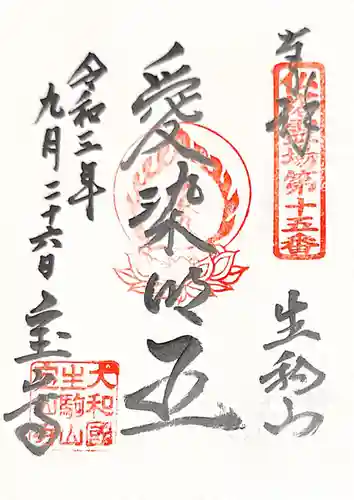 奉拝
霊場第十五番
生駒山
愛染明王
令和三年
九月二十六日
宝山寺
大和國
生駒山
宝山寺